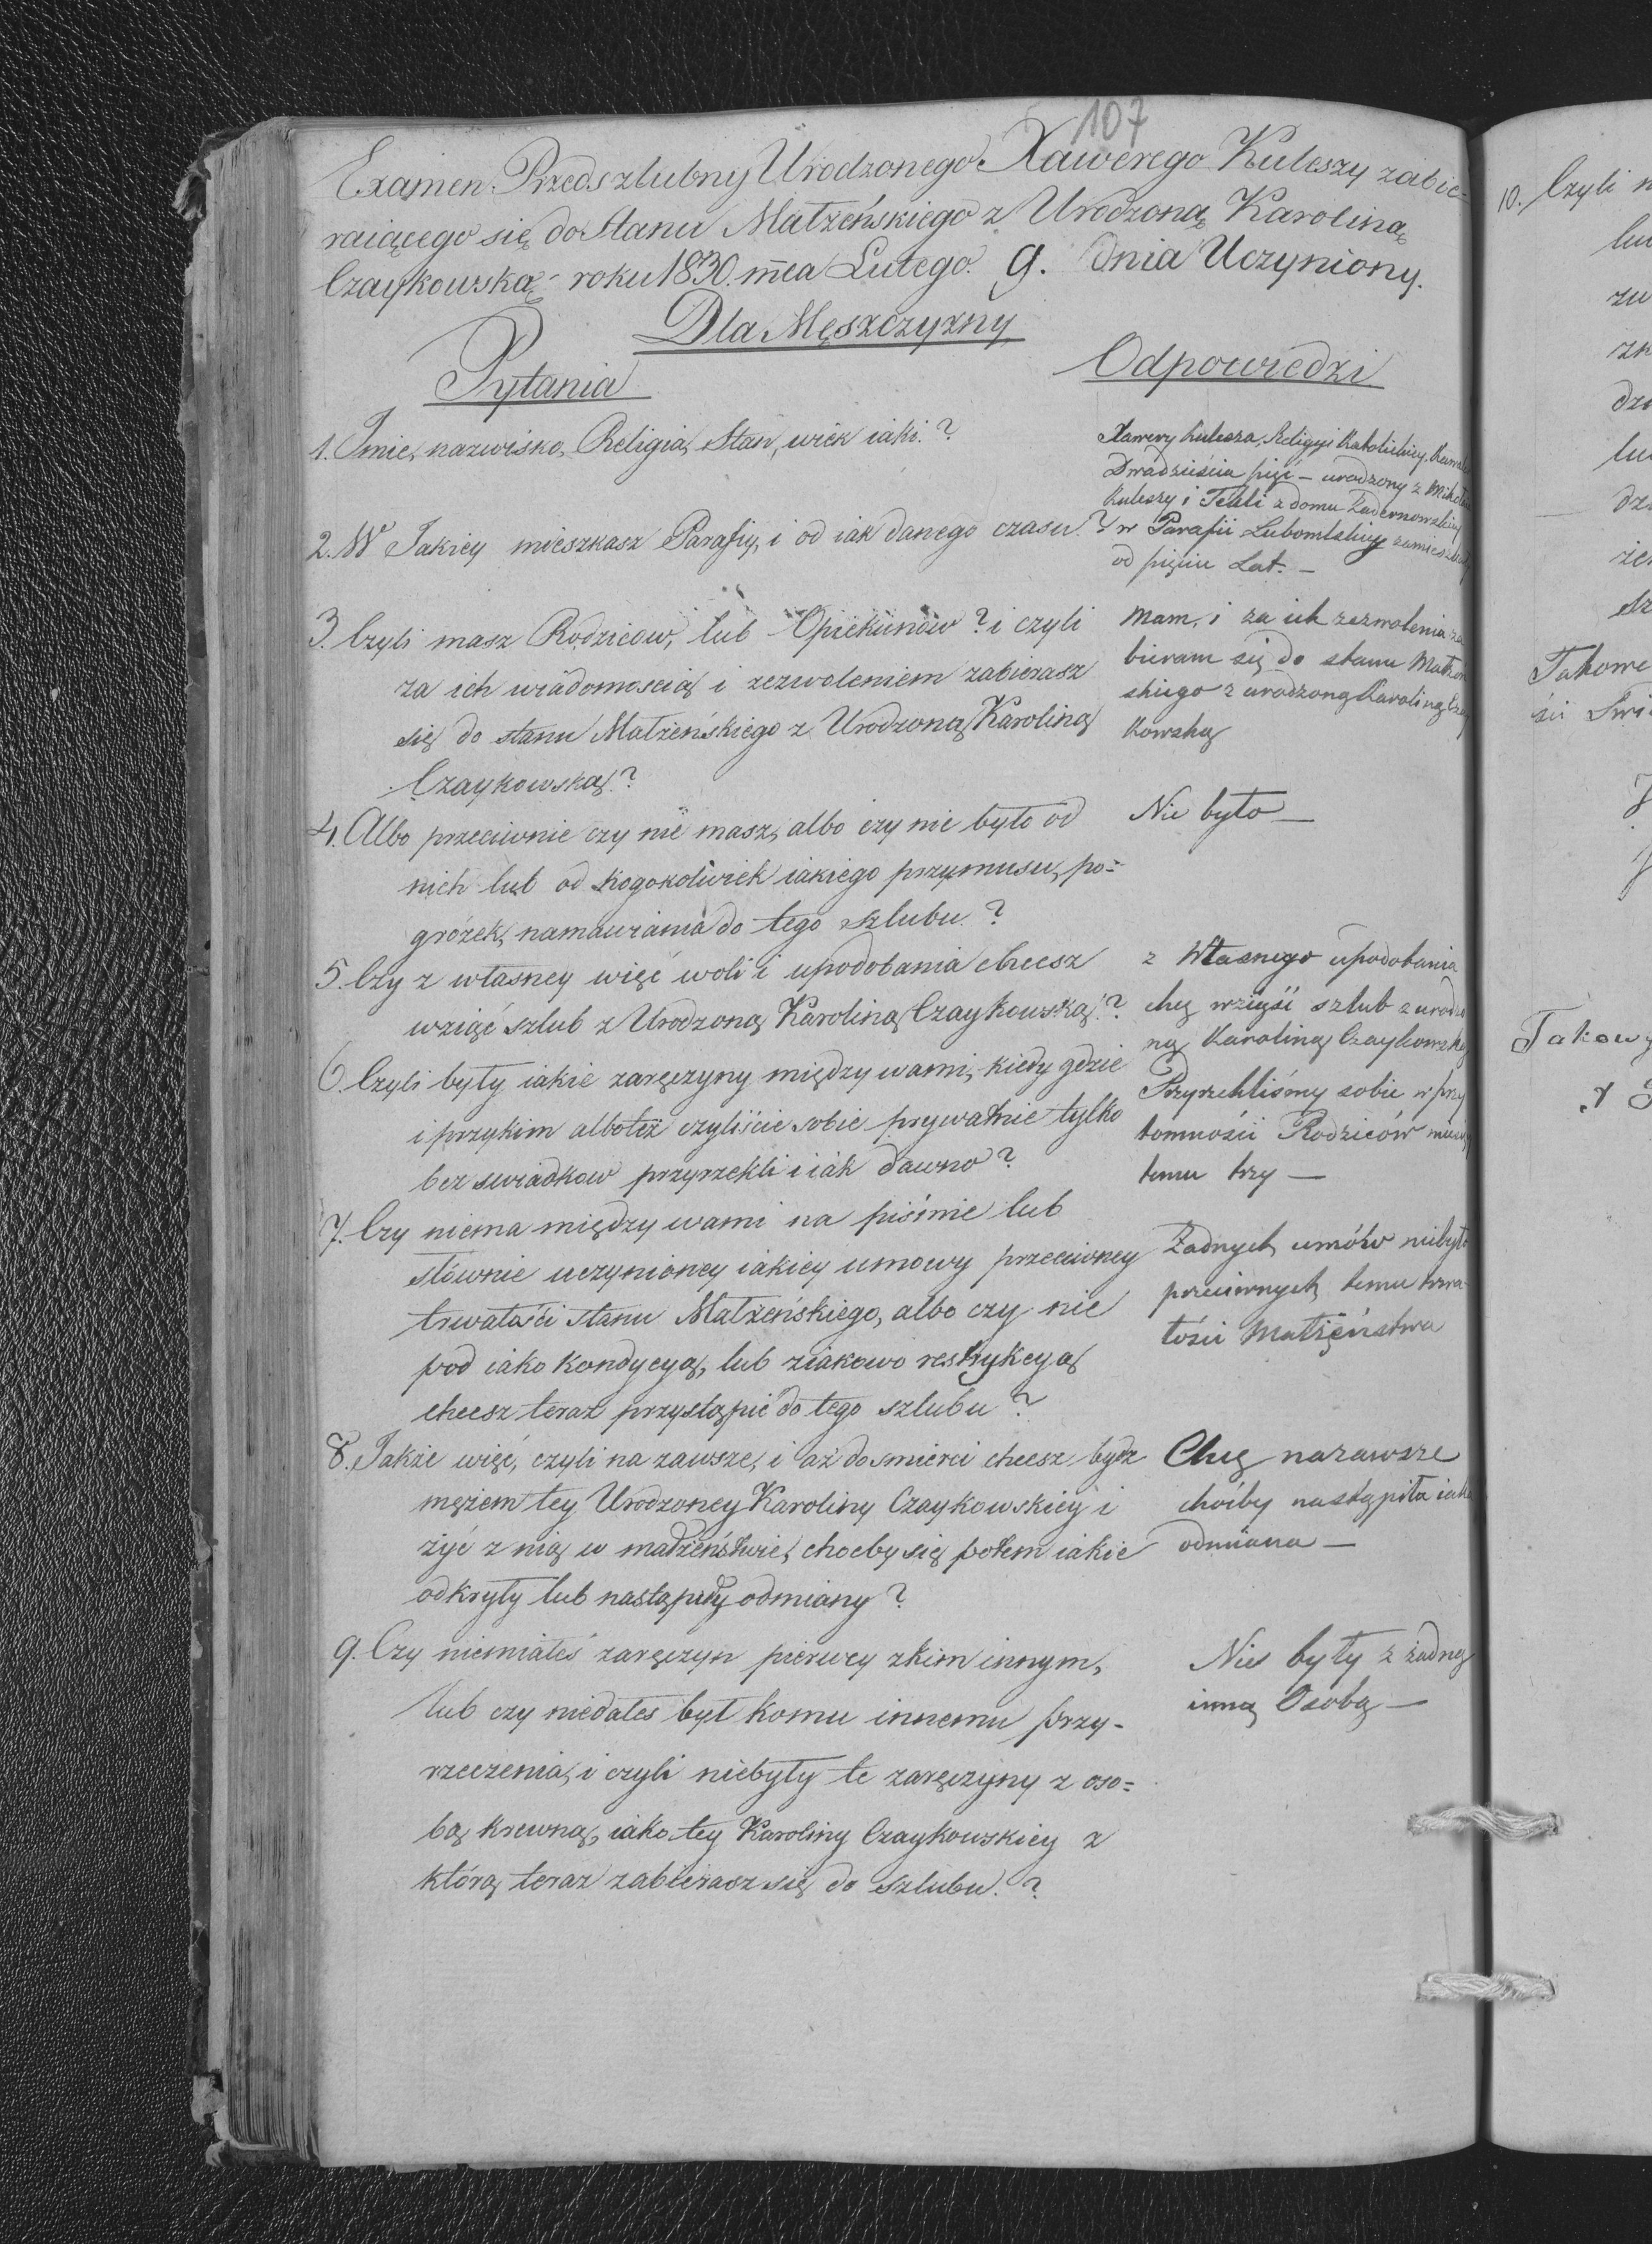 107
Examen Przedszlubny Urodzonego Xawerego Kuleszy zabie-
raiącego się do Stanu Małżeńskiego z Urodzoną Karoliną
Czaykowską - roku 1830. mca Lutego. 9. dnia Uczyniony.
Dla Męszczyzny
Pytania
Odpowiedzi
1. Jmie, nazwisko, Religia, Stan, wiek iaki.?
Xawery Kulesza, Religyi Katolickiey, Kawal
Dwadzieścia pięć - urodzony z Mikoła
Kuleszy i Tekli z domu
2. W Jakiey mieszkasz Parafiy, i od iak danego czasu.?
w Parafii Lubomlskiey zamieszk
od pięciu Lat. -
3. Czyli masz Rodzicow, lub Opiekunów? i czyli
za ich wiadomoscią i zezwoleniem zabierasz
się do stanu Małżeńskiego z Urodzoną Karoliną
Czaykowską?
Mam, i za ich zezwolenia za
bieram się do stanu Małżeń
skiego z urodzoną Karoliną Czay
kowską
4. Albo przeciwnie czy nie masz, albo czy nie było od
nich lub od kogokolwiek iakiego przymusu, po=
gróżek, namawiania do tego szlubu.?
Nie było —
5. Czy z własney więć woli i upodobania chcesz
wziąć szlub z Urodzoną Karoliną Czaykowską.?
z Własnego upodobania
chcę wziąść szlub z urodzo
ną Karoliną Czaykowską
6. Czyli były iakie zaręczyny między wami, kiedy gdzie
i przykim albotez czyliście sobie prywatnie tylko
bez swiadkow przyrzekli i iak dawno?
Przyrzekliśmy sobie w przy
tomności Rodziców
temu trzy —
7. Czy niema między wami na piśmie lub
słównie uczynioney iakiey umowy przeciwney
trwałości stanu Małżeńskiego, albo czy nie
pod iako kondycyą, lub ziakowo restrykcyą
chcesz teraz przystąpić do tego szlubu?
Żadnych umów niebyło
przeciwnych temu trwa
łości Małżeństwa
8. Jakże więć, czyli na zawsze, i aż do smierci chcesz bydz
mężem tey Urodzoney Karoliny Czaykowskiey i
żyć z nią w małżeństwie, chocby się potem iakie
odkryły lub nastąpiły odmiany?
Chcę nazawsze
choćby nastąpiła iaka
odmiana —
9. Czy niemiałeś zaręczyn pierwey zkim innym,
lub czy niedałes był komu innemu przy-
rzeczenia, i czyli niebyły te zaręczyny z oso=
bą krewną, iako tey Karoliny Czaykowskiey z
którą teraz zabierasz się do szlubu.?
Nie były z żadną
inną Osobą —
10. Czyli n
Takowe
Takowy